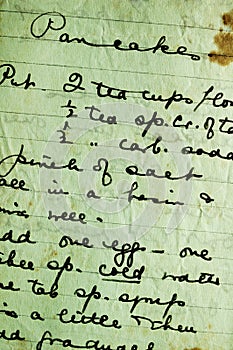 Pancakes
Put 2 tea cups flo
½ tea sp. cr. of ta
½ " carb. soda
pinch of salt
all in a basin &
mix well.
add one egg - one
sp. cold water
tab sp. syrup
a little then
gradual